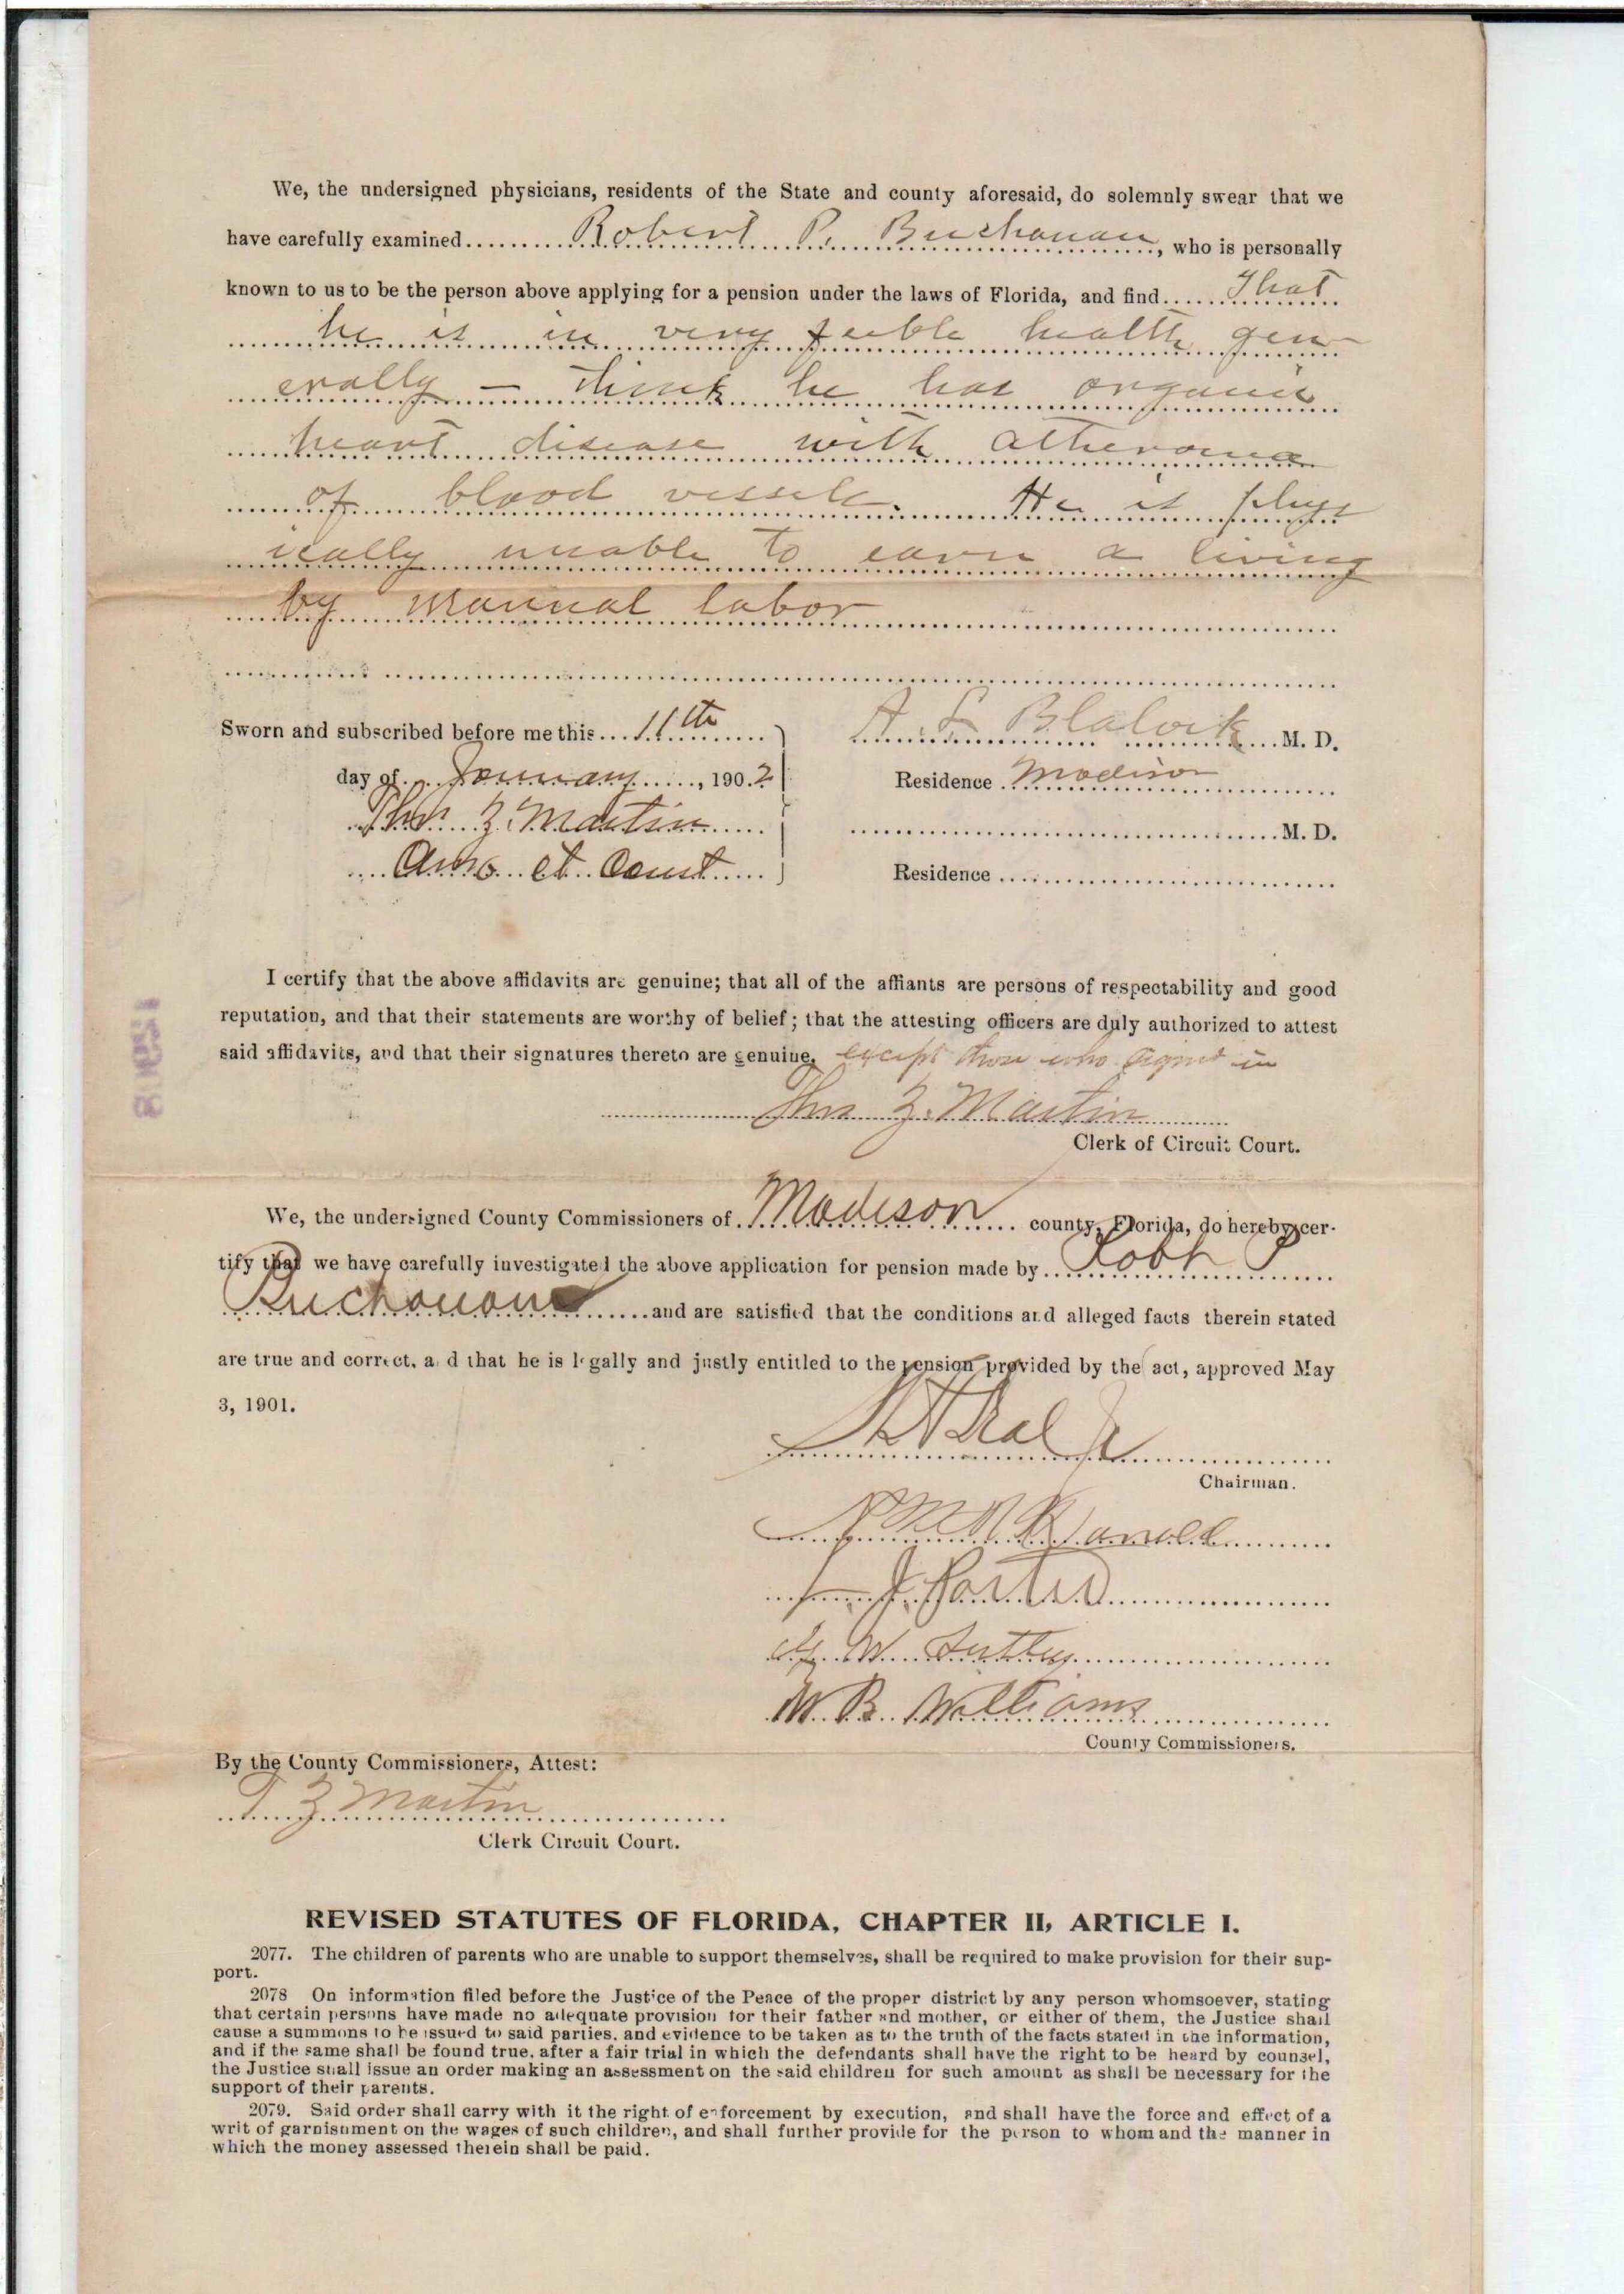 We, the undersigned physicians, residents of the State and county aforesaid, do solemnly swear that we
have carefully examined Robert P. Buchanan, who is personally
known to us to be the person above applying for a pension under the laws of Florida, and find That
he is in very feeble health gen
erally – think he has organic
heart disease with atheroma
of blood vessels. He is phys
ically unable to earn a living
by manual labor
Sworn and subscribed before me this 11th
day of January, 1902
Thos Z. Martin
Ct Court
A L Blalock M. D.
Residence Madison
M. D.
Residence
I certify that the above affidavits are genuine; that all of the affiants are persons of respectability and good
reputation, and that their statements are worthy of belief; that the attesting officers are duly authorized to attest
said affidavits, and that their signatures thereto are genuine, except those who signed in
Thos Z. Martin
Clerk of Circuit Court.
We, the undersigned County Commissioners of Madison county, Florida, do hereby cer-
tify that we have carefully investigated the above application for pension made by Robt P
Buchanan and are satisfied that the conditions and alleged facts therein stated
are true and correct, and that he is legally and justly entitled to the pension provided by the act, approved May
3, 1901.
Chairman.
J. Porter
W.
W. B. Williams
County Commissioners.
By the County Commissioners, Attest:
T Z Martin
Clerk Circuit Court.
REVISED STATUTES OF FLORIDA, CHAPTER II, ARTICLE I.
2077. The children of parents who are unable to support themselves, shall be required to make provision for their sup-
port.
2078 On information filed before the Justice of the Peace of the proper district by any person whomsoever, stating
that certain persons have made no adequate provision for their father and mother, or either of them, the Justice shall
cause a summons to be issued to said parties, and evidence to be taken as to the truth of the facts stated in the information,
and if the same shall be found true, after a fair trial in which the defendants shall have the right to be heard by counsel,
the Justice shall issue an order making an assessment on the said children for such amount as shall be necessary for the
support of their parents.
2079. Said order shall carry with it the right of enforcement by execution, and shall have the force and effect of a
writ of garnishment on the wages of such children, and shall further provide for the person to whom and the manner in
which the money assessed therein shall be paid.